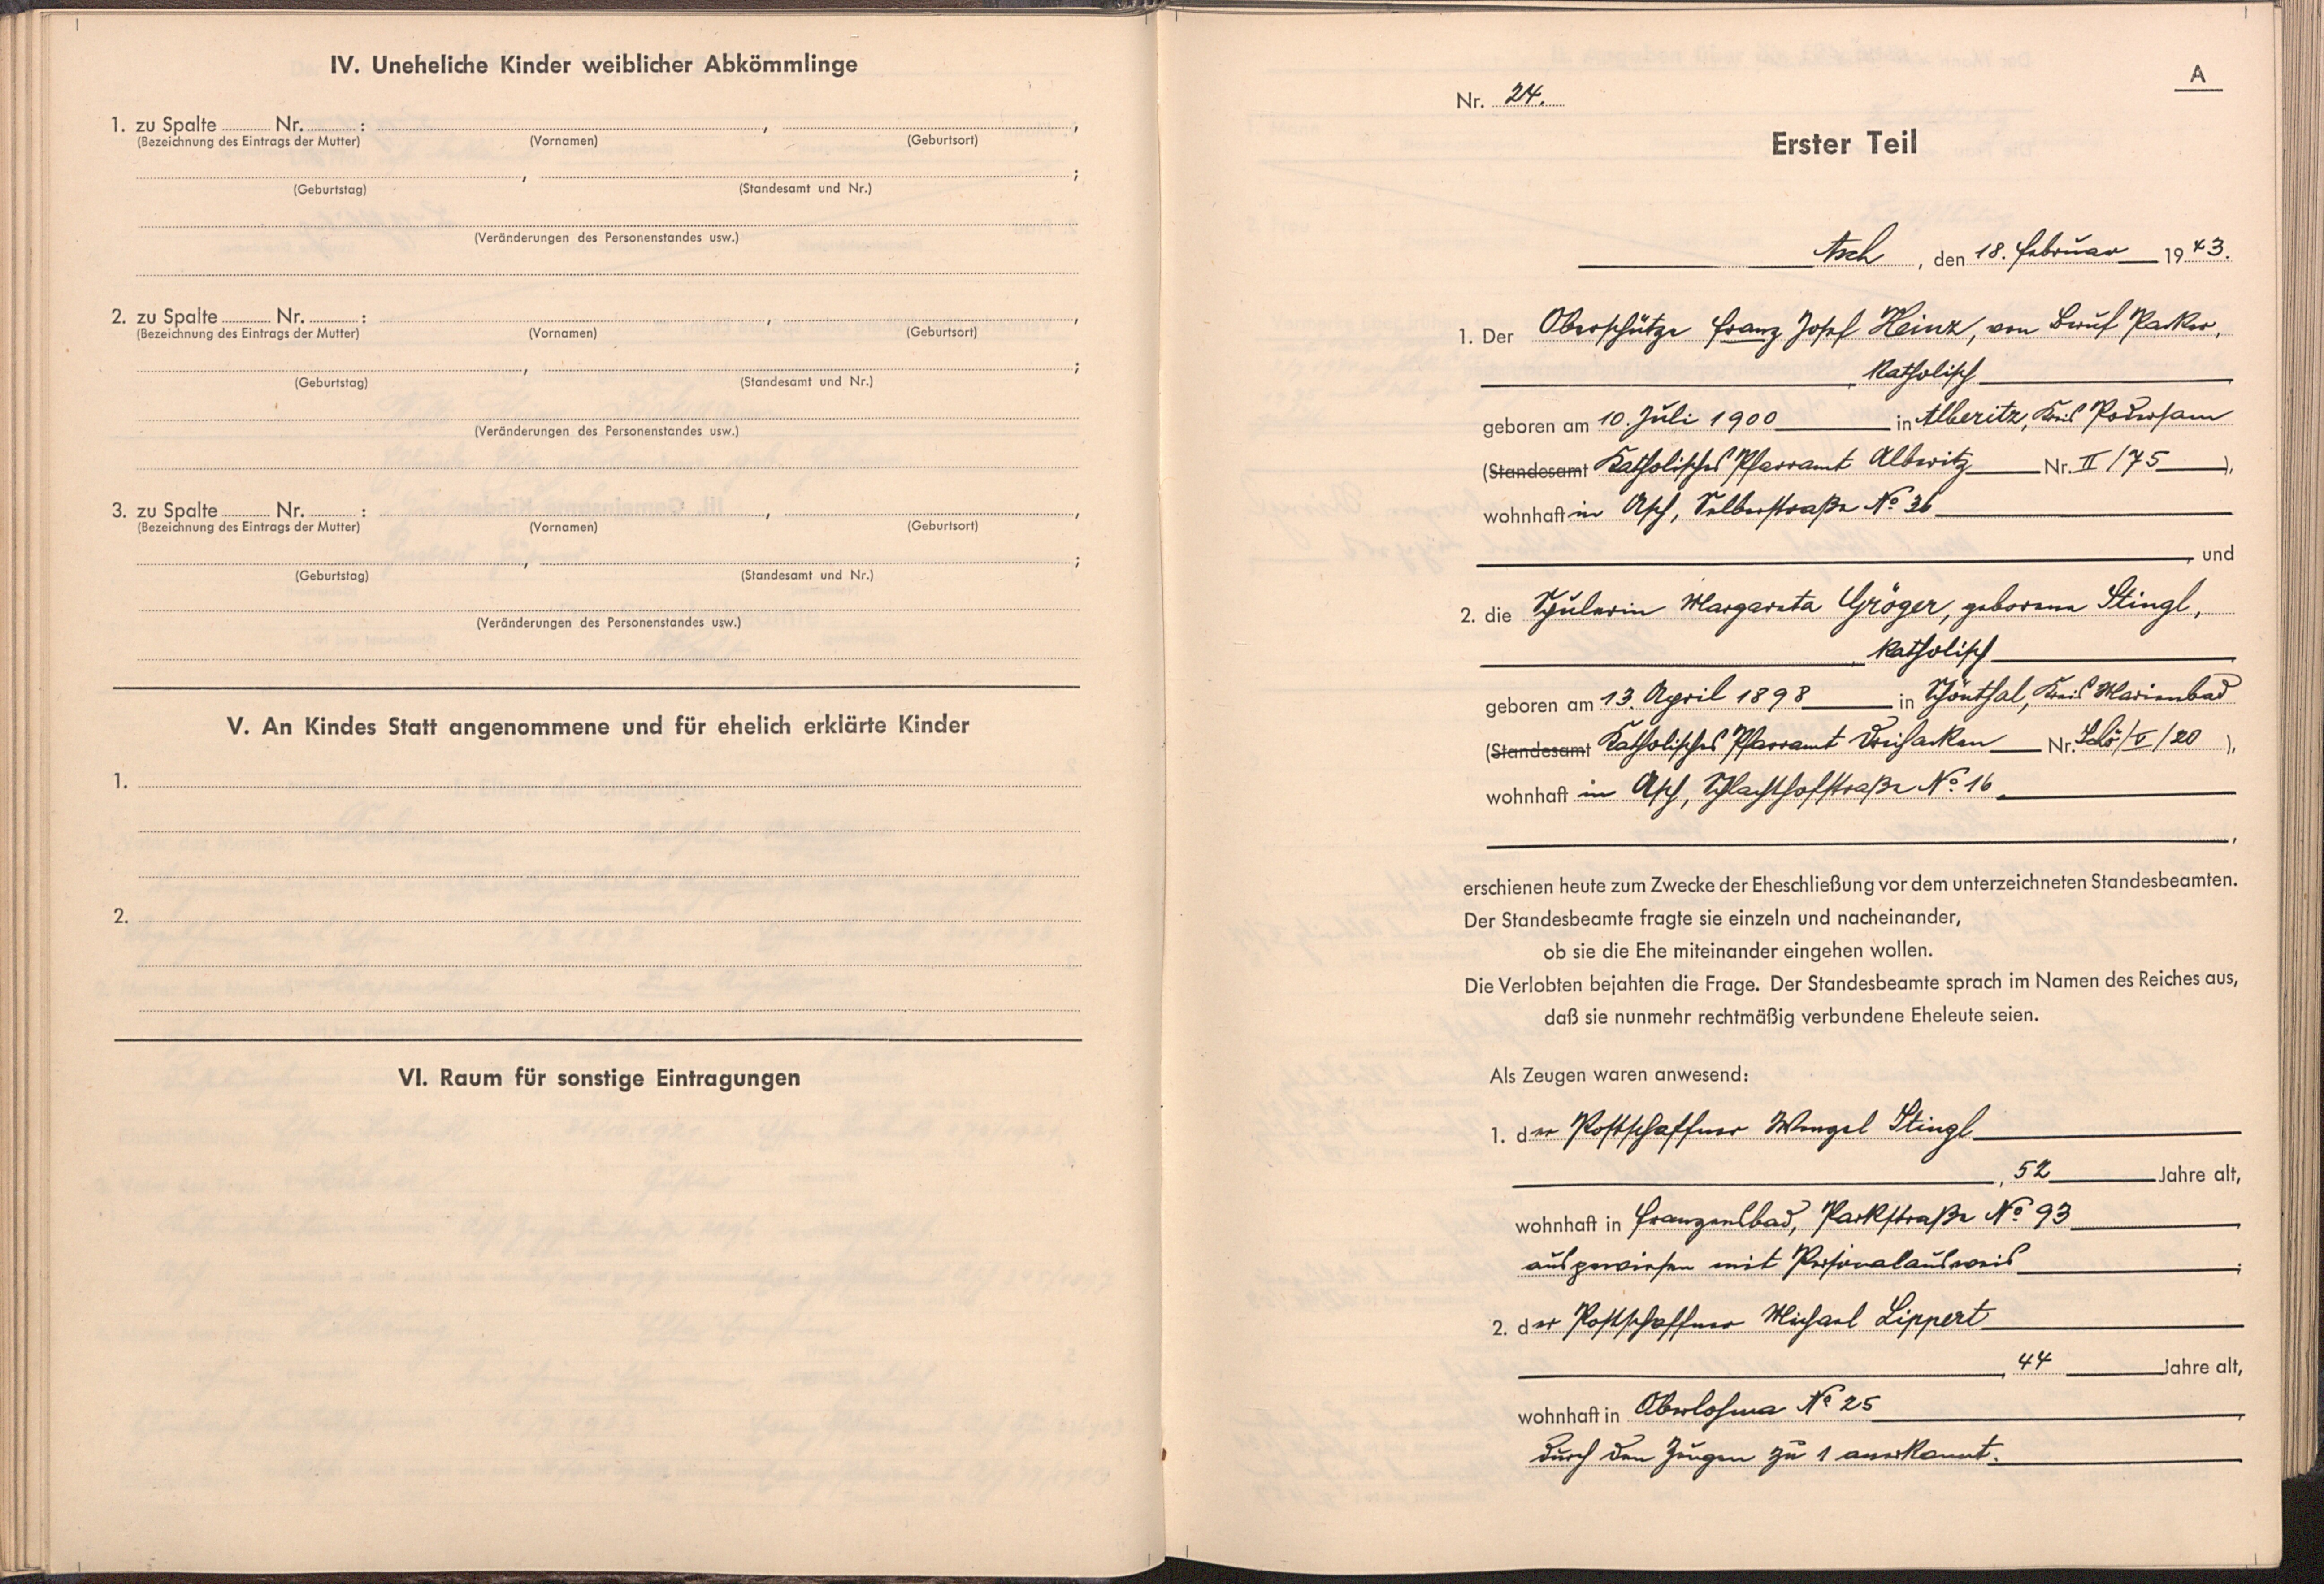 IV. Uneheliche Kinder weiblicher Abkömmlinge
1. zu Spalte ........ Nr. ........ : ........ , ........ ,
(Bezeichnung des Eintrags der Mutter) (Vornamen) (Geburtsort)
........ , ........ ;
(Geburtstag) (Standesamt und Nr.)
(Veränderungen des Personenstandes usw.)
2. zu Spalte ........ Nr. ........ : ........ , ........ ,
(Bezeichnung des Eintrags der Mutter) (Vornamen) (Geburtsort)
........ , ........ ;
(Geburtstag) (Standesamt und Nr.)
(Veränderungen des Personenstandes usw.)
3. zu Spalte ........ Nr. ........ : ........ , ........ ,
(Bezeichnung des Eintrags der Mutter) (Vornamen) (Geburtsort)
........ , ........ ;
(Geburtstag) (Standesamt und Nr.)
(Veränderungen des Personenstandes usw.)
V. An Kindes Statt angenommene und für ehelich erklärte Kinder
1.
2.
VI. Raum für sonstige Eintragungen
A
Nr. 24.
Erster Teil
Asch, den 18. Februar 1943.
1. Der Oberschütze Franz Josef Heinz, von Beruf Packer,
katholisch
geboren am 10. Juli 1900 in Alberitz, Kreis Podersam
(Standesamt Katholisches Pfarramt Alberitz Nr. II/75),
wohnhaft in Asch, Selberstraße No. 36
, und
2. die Spulerin Margareta Gröger, geborene Stingl,
katholisch
geboren am 13. April 1898 in Schönthal, Kreis Marienbad
(Standesamt Katholisches Pfarramt Dreihacken Nr. Schö/V/20),
wohnhaft in Asch, Schlachthofstraße No. 16
,
erschienen heute zum Zwecke der Eheschließung vor dem unterzeichneten Standesbeamten.
Der Standesbeamte fragte sie einzeln und nacheinander,
ob sie die Ehe miteinander eingehen wollen.
Die Verlobten bejahten die Frage. Der Standesbeamte sprach im Namen des Reiches aus,
daß sie nunmehr rechtmäßig verbundene Eheleute seien.
Als Zeugen waren anwesend:
1. der Postschaffner Wenzel Stingl
, 52 Jahre alt,
wohnhaft in Franzensbad, Parkstraße No. 93
ausgewiesen mit Personalausweis ;
2. der Postschaffner Michael Lippert
, 44 Jahre alt,
wohnhaft in Oberlohma No. 25
durch den Zeugen zu 1 anerkannt.